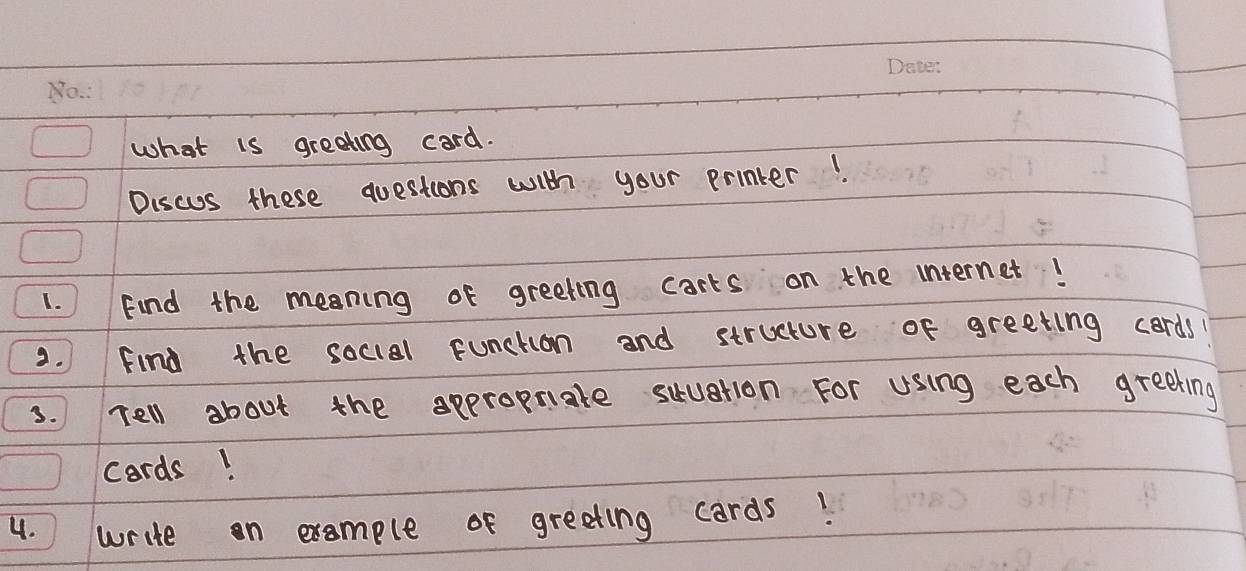 Date:
No.:
what is greeting card.
Discus these questions with your printer !.
1. Find the meaning of greeting carts on the internet !
2. Find the social function and structure of greeting cards!
3. Tell about the appropriate situation for using each greeting
cards !
4. write an example of greeting cards !